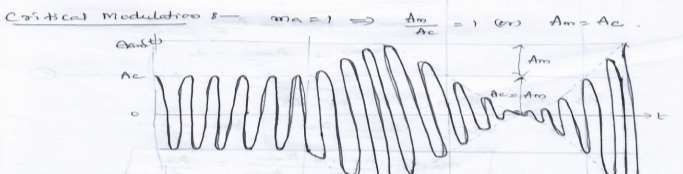 Critical Modulation :— ma = 1 ⇒ Am/Ac = 1 (or) Am = Ac.
Am
Ac
Ac = Am
0
t